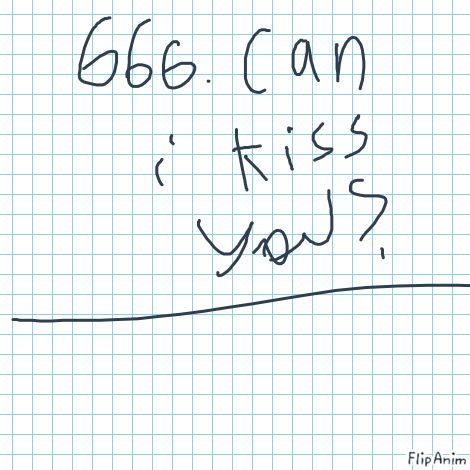 666. can
i kiss
you?
FlipAnim